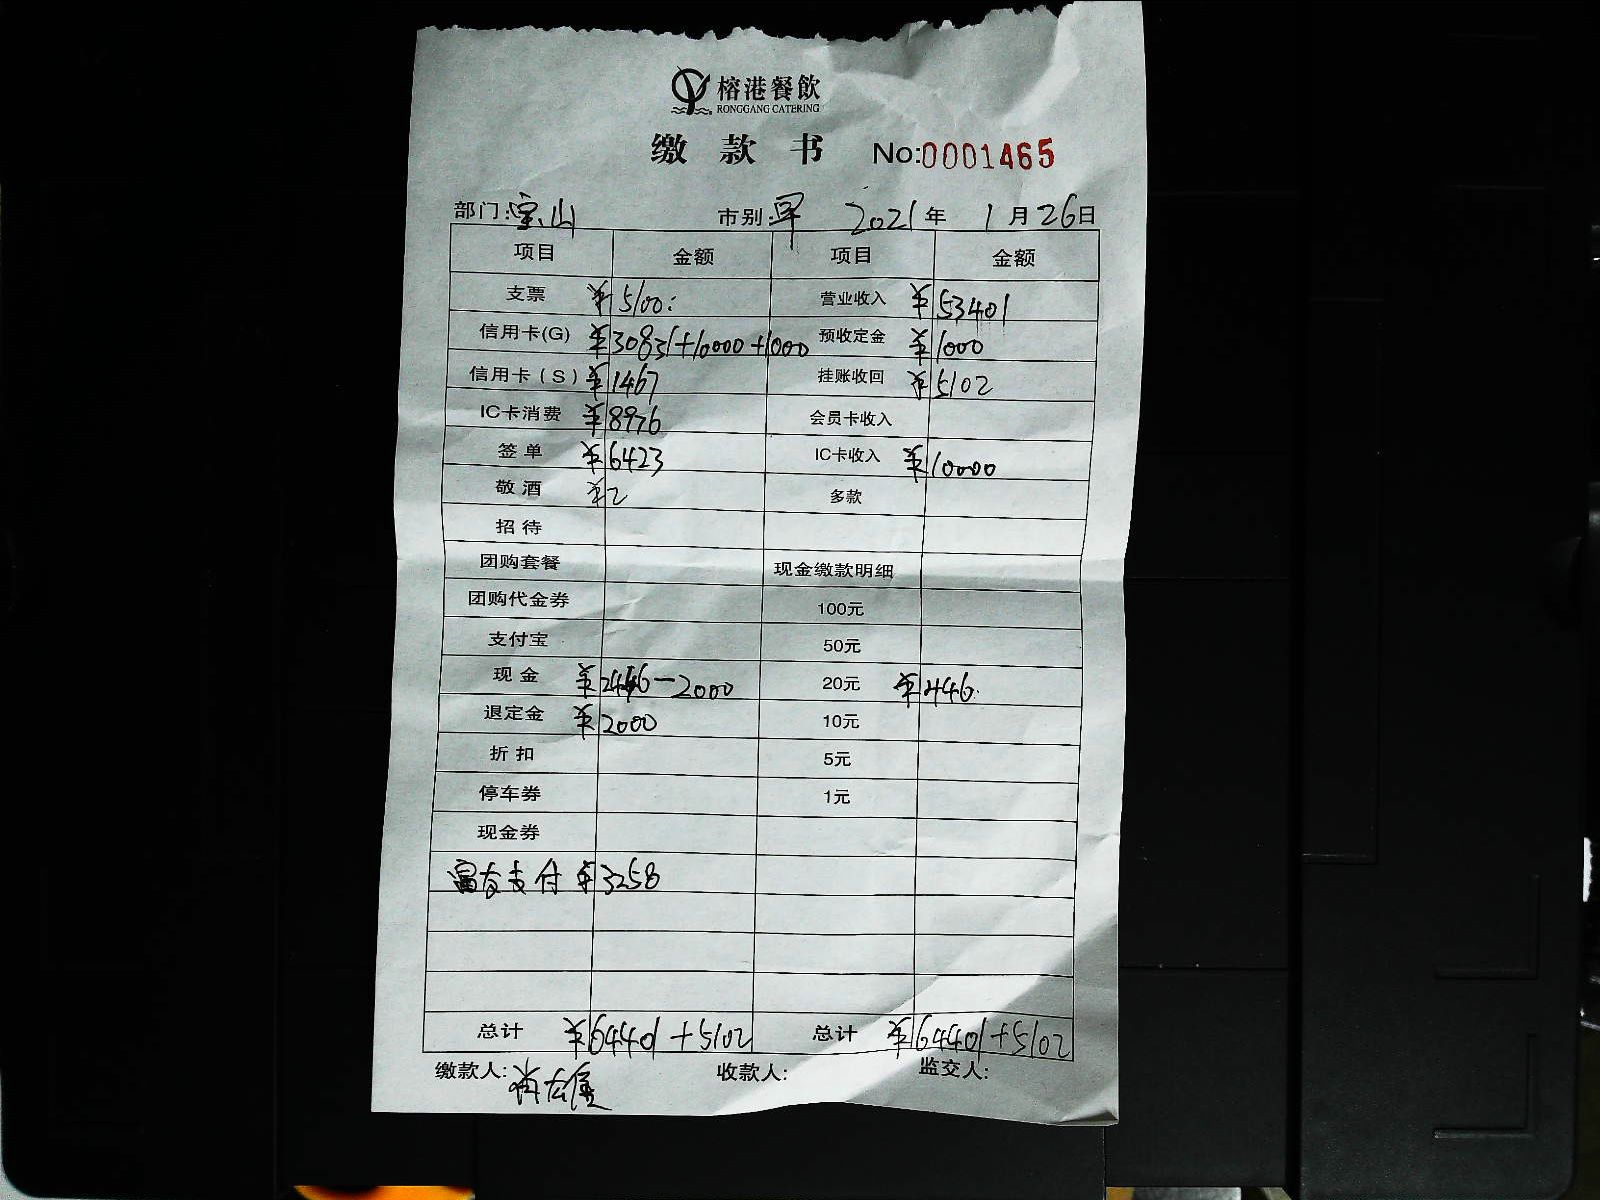 榕港餐飲
RONGGANG CATERING
缴款书 No:0001465
部门:宝山 市别:早 2021年 1月26日
项目 金额 项目 金额
支票 ¥5100: 营业收入 ¥53401
信用卡(G) ¥30831+10000+1000 预收定金 ¥1000
信用卡(S) ¥1467 挂账收回 ¥5102
IC卡消费 ¥8976 会员卡收入
签单 ¥6423 IC卡收入 ¥10000
敬酒 ¥2 多款
招待
团购套餐 现金缴款明细
团购代金券 100元
支付宝 50元
现金 ¥2446-2000 20元 ¥446.
退定金 ¥2000 10元
折扣 5元
停车券 1元
现金券
富友支付 ¥3258
总计 ¥64401+5102 总计 ¥64401+5102
缴款人: 收款人: 监交人: